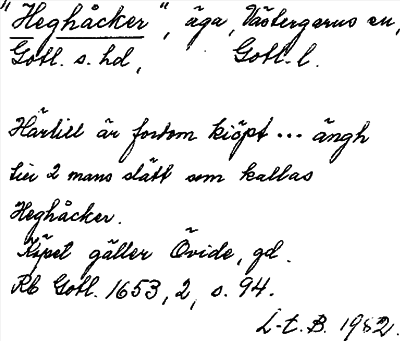 "Heghåcker", äga, Västergarns sn,
Gotl. s. hd, Gotl. l.
Härtill är fordom kiöpt ... ängh
tier 2 mans slätt som kallas
Heghåcker.
Köpet gäller Övide, gd.
Rb Gotl. 1653, 2, s. 94.
L-t. B. 1982.